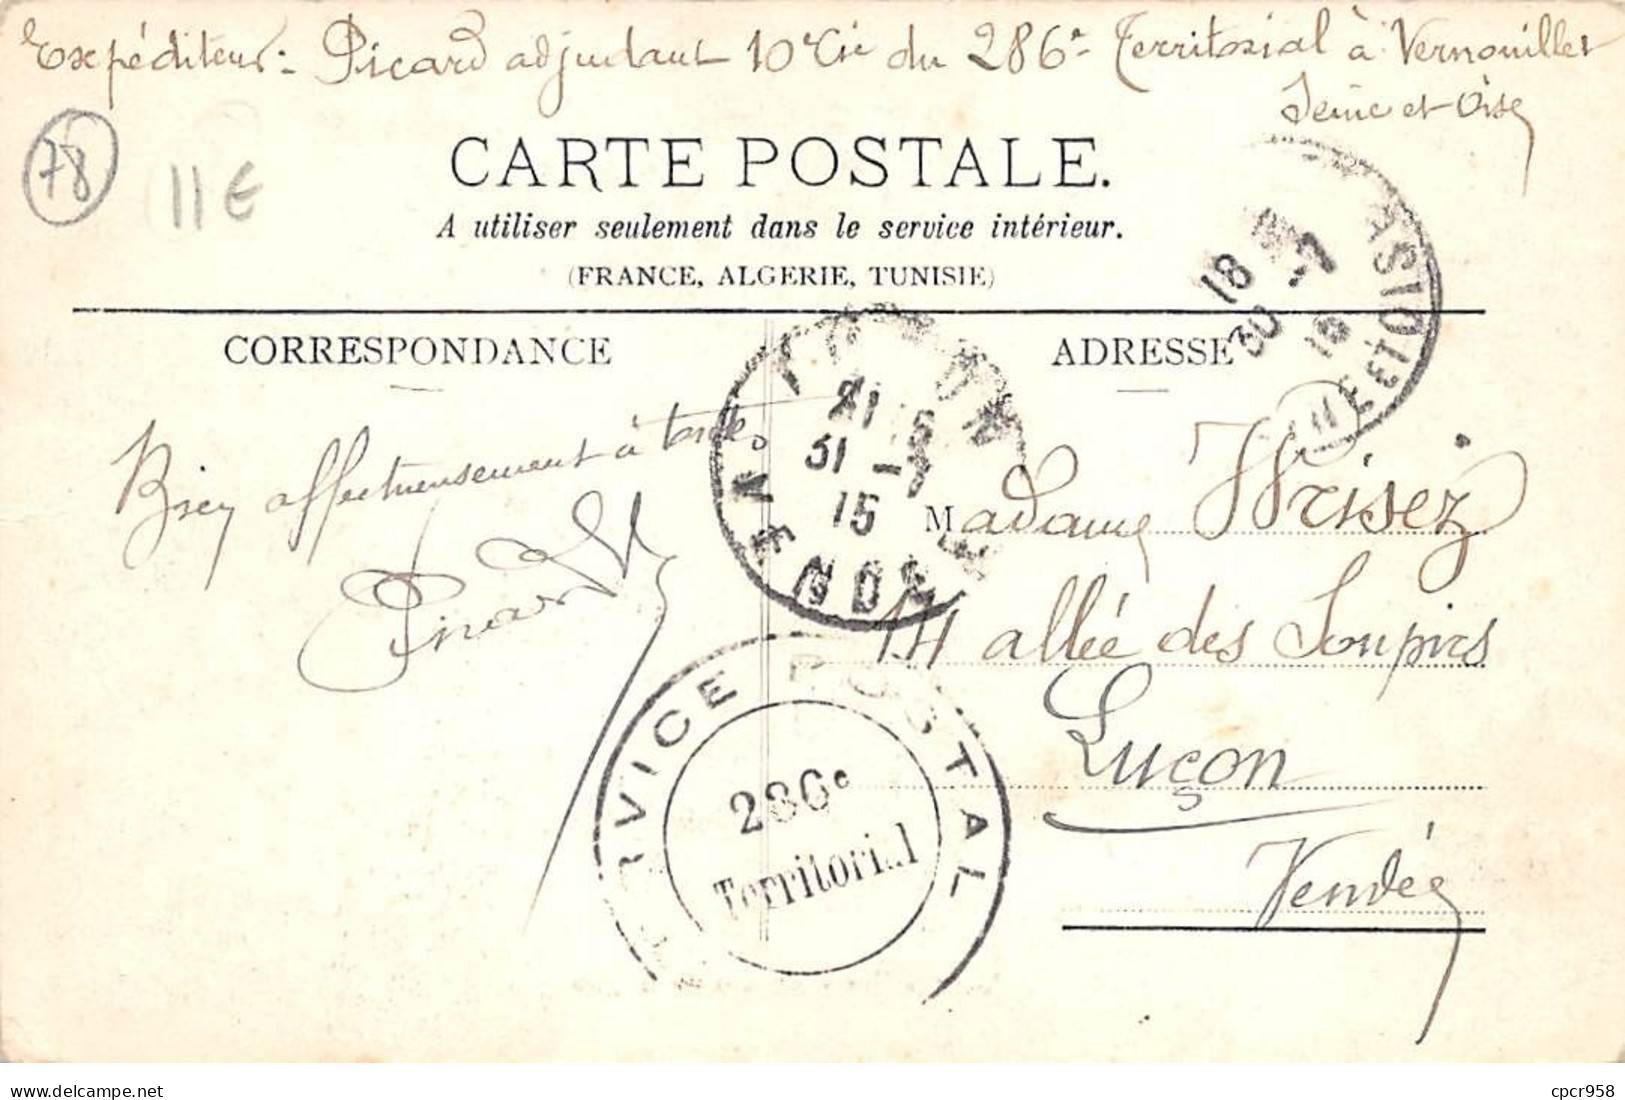 Expéditeur : Picard adjudant 10e Cie du 286e Territorial à Vernouillet
Seine et Oise
78
11€
CARTE POSTALE.
A utiliser seulement dans le service intérieur.
(FRANCE, ALGERIE, TUNISIE)
CORRESPONDANCE
ADRESSE
18
30 -7
SEINE ET OISE
21
31 -7
15
VENDÉE
Bien affectueusement à toutes
Picard
Madame Wrisez
14 allée des Soupirs
Luçon
Vendée
SERVICE POSTAL
286e
Territorial
cpcr958